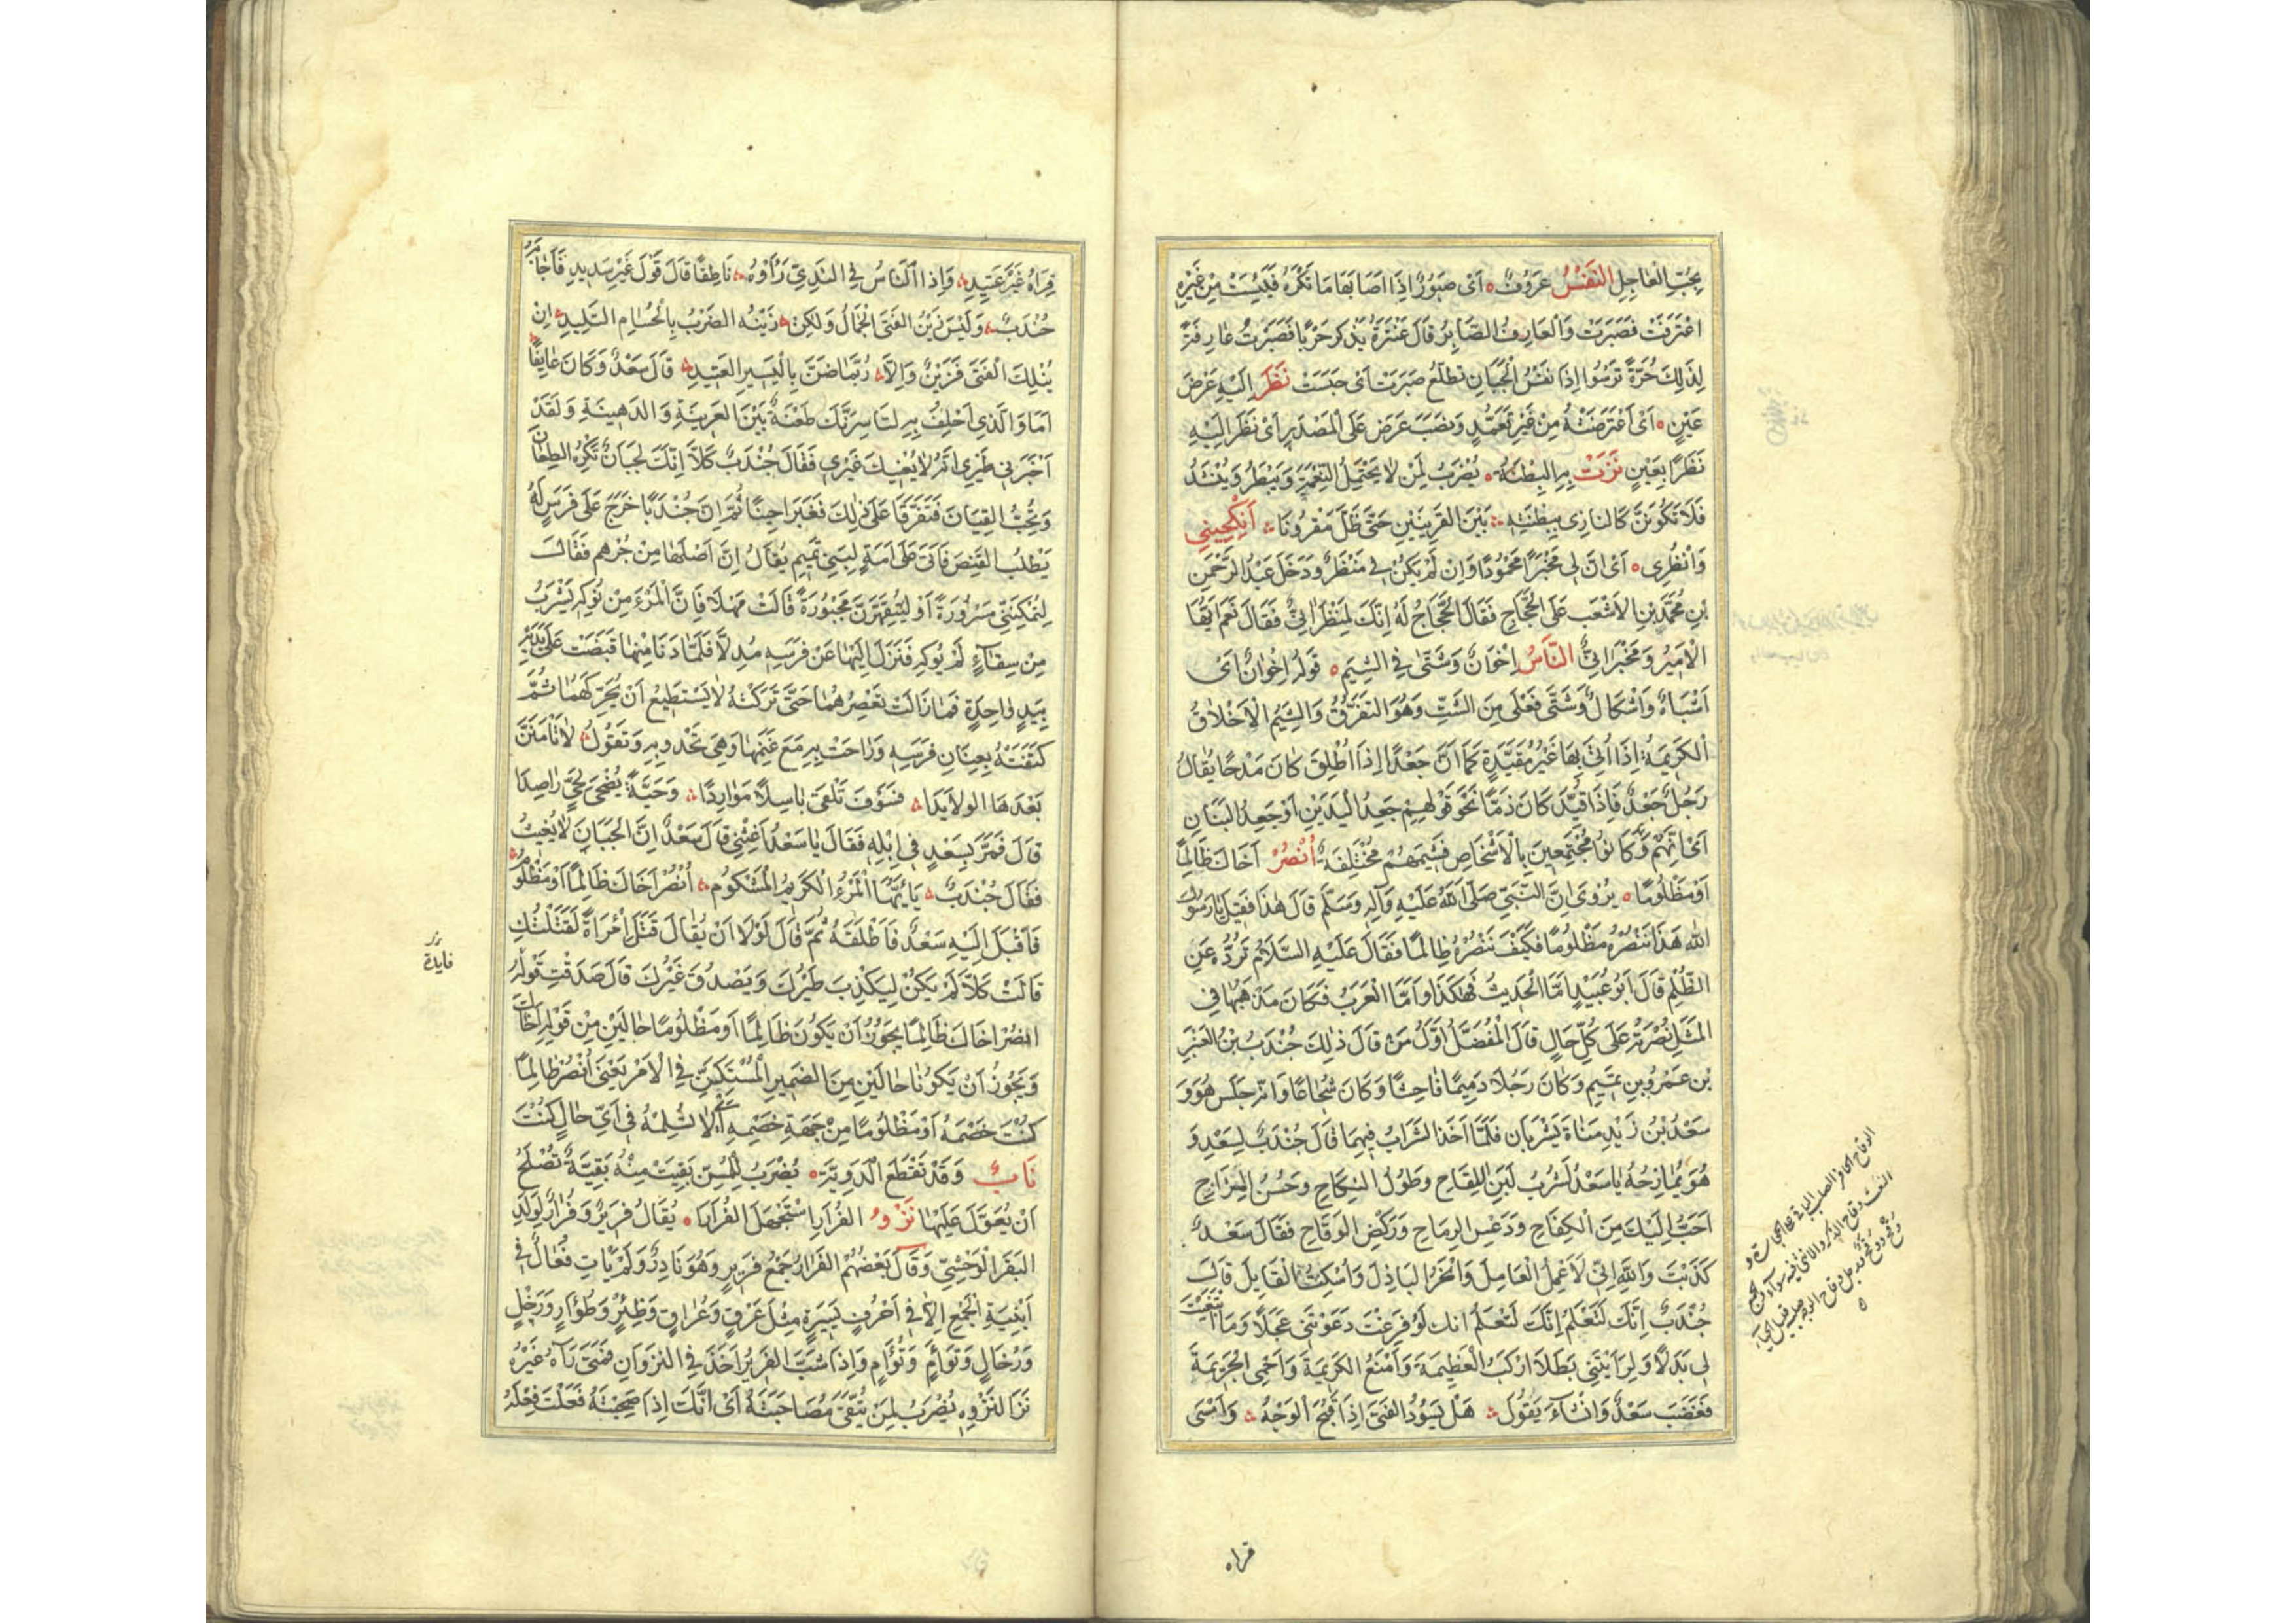 بِحُبِّ الْعَاجِلِ النَّفْسُ عَرُوفٌ ه اَىْ صَبُورٌ اِذَا اَصَابَهَا مَا تَكْرَهُ فَيَئِسَتْ مِنْ خَيْرِهِ
اعْتَرَفَتْ فَصَبَرَتْ وَالْعَارِفُ الصَّابِرُ قَالَ عَنْتَرَةُ يَذْكُرُ حَرْبًا فَصَبَرْتُ عَارِفَةً
لِذٰلِكَ حُرَّةً تَرْسُوا اِذَا نَفْسُ الْجَبَانِ تَطَلَّعُ صَبَرَتْ اَىْ حَبَسَتْ نَظَرَ اِلَيْهِ عَرْضَ
عَيْنٍ ه اَىْ اعْتَرَضَتْهُ مِنْ غَيْرِ تَعَمُّدٍ وَنَصَبَ عَرْضَ عَلَى الْمَصْدَرِ اَىْ نَظَرَ اِلَيْهِ
نَظَرًا بِعَيْنٍ نَزَتْ بِهِ الْبِطْنَةُ ه يُضْرَبُ لِمَنْ لَا يَحْتَمِلُ النِّعْمَةَ وَيَبْطَرُ وَيُنْشَدُ
فَلَا تَكُونَنَّ كَالنَّازِى بِبِطْنَتِهِ بَيْنَ الْقَرِينَيْنِ حَتّٰى ظَلَّ مَقْرُونَا اَنْكِحِينِى
وَانْظُرِى ه اَىْ اِنَّ لِى مَخْبَرًا مَحْمُودًا وَاِنْ لَمْ يَكُنْ لِى مَنْظَرٌ وَدَخَلَ عَبْدُ الرَّحْمٰنِ
بْنِ مُحَمَّدِ بْنِ الْاَشْعَثِ عَلَى الْحَجَّاجِ فَقَالَ الْحَجَّاجُ لَهُ اِنَّكَ لَمَنْظَرَانِىٌّ فَقَالَ نَعَمْ اَيُّهَا
الْاَمِيرُ وَمَخْبَرَانِىٌّ النَّاسُ اِخْوَانٌ وَشَتّٰى فِى الشِّيَمِ ه قَوْلُهُ اِخْوَانٌ اَىْ
اَشْبَاهٌ وَاَشْكَالٌ وَشَتّٰى فَعْلٰى مِنَ الشَّتِّ وَهُوَ التَّفَرُّقُ وَالشِّيَمُ الْاَخْلَاقُ
الْكَرِيمَةُ اِذَا اُتِىَ بِهَا غَيْرَ مُقَيَّدَةٍ كَمَا اَنَّ جَعْدًا اِذَا اُطْلِقَ كَانَ مَدْحًا يُقَالُ
رَجُلٌ جَعْدٌ فَاِذَا قُيِّدَ كَانَ ذَمًّا نَحْوَ قَوْلِهِمْ جَعْدُ الْيَدَيْنِ اَوْ جَعْدُ الْبَنَانِ
اَىْ اِنَّهُمْ وَ كَانُوا مُجْتَمِعِينَ بِالْاَشْخَاصِ فَشِيَمُهُمْ مُخْتَلِفَةٌ اُنْصُرْ اَخَاكَ ظَالِمًا
اَوْ مَظْلُومًا ه يُرْوٰى اَنَّ النَّبِىَّ صَلَّى اللّٰهُ عَلَيْهِ وَآلِهِ وَسَلَّمَ قَالَ هٰذَا فَقِيلَ يَا رَسُولَ
اللّٰهِ هَذَا نَنْصُرُهُ مَظْلُومًا فَكَيْفَ نَنْصُرُهُ ظَالِمًا فَقَالَ عَلَيْهِ السَّلَامُ تَرُدُّهُ عَنِ
الظُّلْمِ قَالَ اَبُو عُبَيْدٍ اَمَّا الْحَدِيثُ فَهٰكَذَا وَاَمَّا الْعَرَبُ فَكَانَ مَذْهَبُهَا فِى
الْمَثَلِ نُصْرَتَهُ عَلٰى كُلِّ حَالٍ قَالَ الْمُفَضَّلُ اَوَّلُ مَنْ قَالَ ذٰلِكَ جُنْدَبُ بْنُ الْعَنْبَرِ
بْنِ عَمْرِو بْنِ تَمِيمٍ وَكَانَ رَجُلًا دَمِيمًا فَاحِشًا وَكَانَ شُجَاعًا وَاِنَّهُ جَلَسَ هُوَ وَ
سَعْدُ بْنُ زَيْدِ مَنَاةَ يَشْرَبَانِ فَلَمَّا اَخَذَ الشَّرَابُ فِيهِمَا قَالَ جُنْدَبٌ لِسَعْدٍ وَ
هُوَ يُمَازِحُهُ يَا سَعْدُ لَشُرْبُ لَبَنِ اللِّقَاحِ وَطُولُ النِّكَاحِ وَحُسْنُ الْمِزَاحِ
اَحَبُّ اِلَيْكَ مِنَ الْكِفَاحِ وَدَعْسِ الرِّمَاحِ وَرَكْضِ الْوَقَاحِ فَقَالَ سَعْدٌ
كَذَبْتَ وَاللّٰهِ اِنِّى لَاَعْمِلُ الْعَامِلَ وَاَنْحَرُ الْبَاذِلَ وَاُسْكِتُ الْقَايِلَ قَالَ
جُنْدَبٌ اِنَّكَ لَتَعْلَمُ اِنَّكَ لَتَعْلَمُ انك لَوْ فَزِعْتَ دَعَوْتَنِى عَجَلًا وَمَا ابْتَغَيْتَ
لِى بَدَلًا وَلَرَاَيْتَنِى بَطَلًا اَرْكَبُ الْعَظِيمَةَ وَاَمْنَعُ الْكَرِيمَةَ وَاَحْمِى الْحَرِيمَةَ
فَغَضِبَ سَعْدٌ وَاَنْشَاَ يَقُولُ هَلْ يَسُودُ الْفَتٰى اِذَا قَبُحَ الْوَجْهُ وَاَمْسٰى
قراه
قِرَاهُ غَيْرَ عَتِيدِ وَاِذَا النَّاسُ فِى النَّدِىِّ رَاَوْهُ نَاطِقًا قَالَ قَوْلَ غَيْرِ سَدِيدِ فَاَجَابَهُ
جُنْدَبٌ وَلَيْسَ زَيْنُ الْفَتَى الْجَمَالُ وَلٰكِنْ زَيْنُهُ الضَّرْبُ بِالْحُسَامِ التَّلِيدِ اِنْ
يُنْلِكَ الْفَتٰى فَزَيْنٌ وَاِلَّا رُبَّمَا ضَنَّ بِالْيَسِيرِ الْعَتِيدِ قَالَ سَعْدٌ وَكَانَ عَايِفًا
اَمَا وَالَّذِى اَحْلِفُ بِهِ لَتَاْسِرَنَّكَ ظَعِينَةٌ بَيْنَ الْعَرِينَةِ وَالدَّهِينَةِ وَلَقَدْ
اَخْبَرَنِى طَيْرِى اَنَّهُ لَا يُغِيثُكَ غَيْرِى فَقَالَ جُنْدَبٌ كَلَّا اِنَّكَ لَجَبَانٌ تَكْرَهُ الطِّعَانَ
وَتُحِبُّ الْقِيَانَ فَتَفَرَّقَا عَلٰى ذٰلِكَ فَغَبَرَا حِينًا ثُمَّ اِنَّ جُنْدَبًا خَرَجَ عَلٰى فَرَسٍ لَهُ
يَطْلُبُ الْقَنَصَ فَاَتٰى عَلٰى اَمَةٍ لِبَنِى تَمِيمٍ يُقَالُ اِنَّ اَصْلَهَا مِنْ جُرْهُمَ فَقَالَ
لِتُمَكِّنِنِّى مَسْرُورَةً اَوْ لَتُقْهَرَنَّ مَجْبُورَةً قَالَتْ مَهْلًا فَاِنَّ الْمَرْءَ مِنْ نُوكِهِ يَشْرَبُ
مِنْ سِقَاءٍ لَمْ يُوكِهِ فَنَزَلَ اِلَيْهَا عَنْ فَرَسِهِ مُدِلًّا فَلَمَّا دَنَا مِنْهَا قَبَضَتْ عَلٰى يَدَيْهِ
بِيَدٍ وَاحِدَةٍ فَمَا زَالَتْ تَعْصِرُهُمَا حَتّٰى تَرَكَتْهُ لَا يَسْتَطِيعُ اَنْ يُحَرِّكَهُمَا ثُمَّ
كَتَفَتْهُ بِعِنَانِ فَرَسِهِ وَرَاحَتْ بِهِ مَعَ غَنَمِهَا وَهِىَ تَحْدُو بِهِ وَتَقُولُ لَا تَاْمَنَنَّ
بَعْدَهَا الْوَلَايِدَا فَسَوْفَ تَلْقٰى بَاسِلًا مَوَارِدَا وَحَيَّةً يُضْحِى لِحَىٍّ رَاصِدَا
قَالَ فَمَرَّ بِسَعْدٍ فِى اِبِلِهِ فَقَالَ يَا سَعْدُ اَغِثْنِى قَالَ سَعْدٌ اِنَّ الْجَبَانَ لَا يُغِيثُ
فَقَالَ جُنْدَبٌ يَا اَيُّهَا الْمَرْءُ الْكَرِيمُ الْمَشْكُومُ اُنْصُرْ اَخَاكَ ظَالِمًا اَوْ مَظْلُومْ
فَاَقْبَلَ اِلَيْهِ سَعْدٌ فَاَطْلَقَهُ ثُمَّ قَالَ لَوْلَا اَنْ يُقَالَ قَتَلَ امْرَاَةً لَقَتَلْتُكِ
قَالَتْ كَلَّا لَمْ يَكُنْ لِيَكْذِبَ طَيْرُكَ وَيَصْدُقَ غَيْرُكَ قَالَ صَدَقْتِ قَوْلُهُ
انْصُرْ اَخَاكَ ظَالِمًا يَجُوزُ اَنْ يَكُونَ ظَالِمًا اَوْ مَظْلُومًا حَالَيْنِ مِنْ قَوْلِهِ اَخَاكَ
وَيَجُوزُ اَنْ يَكُونَا حَالَيْنِ مِنَ الضَّمِيرِ الْمُسْتَكِنِّ فِى الْاَمْرِ يَعْنِى اُنْصُرْ ظَالِمًا
كُنْتَ خَصْمَهُ اَوْ مَظْلُومًا مِنْ جِهَةِ خَصْمِهِ اَىْ لَا تُسْلِمْهُ فِى اَىِّ حَالٍ كُنْتَ
نَابٌ وَقَدْ تَقْطَعُ الدَّوِيَّةَ ه يُضْرَبُ لِلْمُسِنِّ بَقِيَتْ مِنْهُ بَقِيَّةٌ تَصْلُحُ
اَنْ يُعَوَّلَ عَلَيْهَا نَزْوُ الْفُرَارِ اسْتَجْهَلَ الْفُرَارَا ه يُقَالُ فَرِيرٌ وَفُرَارٌ لِوَلَدِ
الْبَقَرِ الْوَحْشِىِّ وَقَالَ بَعْضُهُمُ الْفُرَارُ جَمْعُ فَرِيرٍ وَهُوَ نَادِرٌ وَلَمْ يَاْتِ فُعَالٌ فِى
اَبْنِيَةِ الْجَمْعِ اِلَّا فِى اَحْرُفٍ يَسِيرَةٍ مِثْلَ عَرْقٍ وَعُرَاقٍ وَظِئْرٍ وَظُؤَارٍ وَرَخْلٍ
وَرُخَالٍ وَتَوْاَمٍ وَتُؤَامٍ وَاِذَا شَبَّ الْفَرِيرُ اَخَذَ فِى النَّزَوَانِ فَمَتٰى رَآهُ غَيْرُهُ
نَزَا لِنَزْوِهِ يُضْرَبُ لِمَنْ تُتَّقٰى مُصَاحَبَتُهُ اَىْ اِنَّكَ اِذَا صَحِبْتَهُ فَعَلْتَ فِعْلَهُ
فايدة